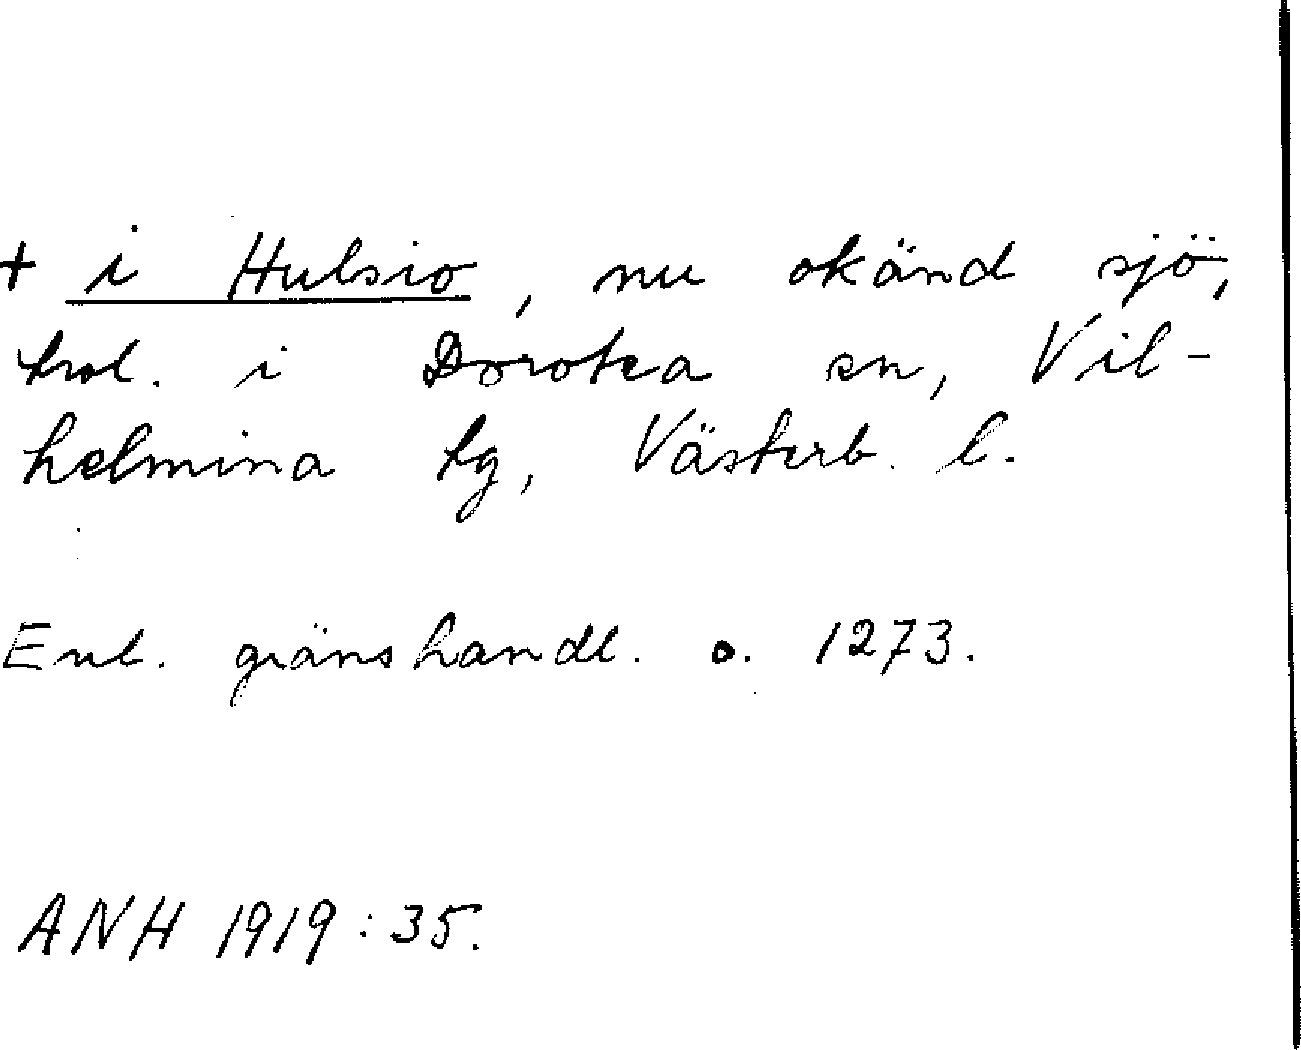 + i Hulsio, nu okänd sjö,
trol. i Dorotea sn, Vil-
helmina tg, Västerb. l.
Enl. gränshandl. o. 1273.
ANH 1919:35.